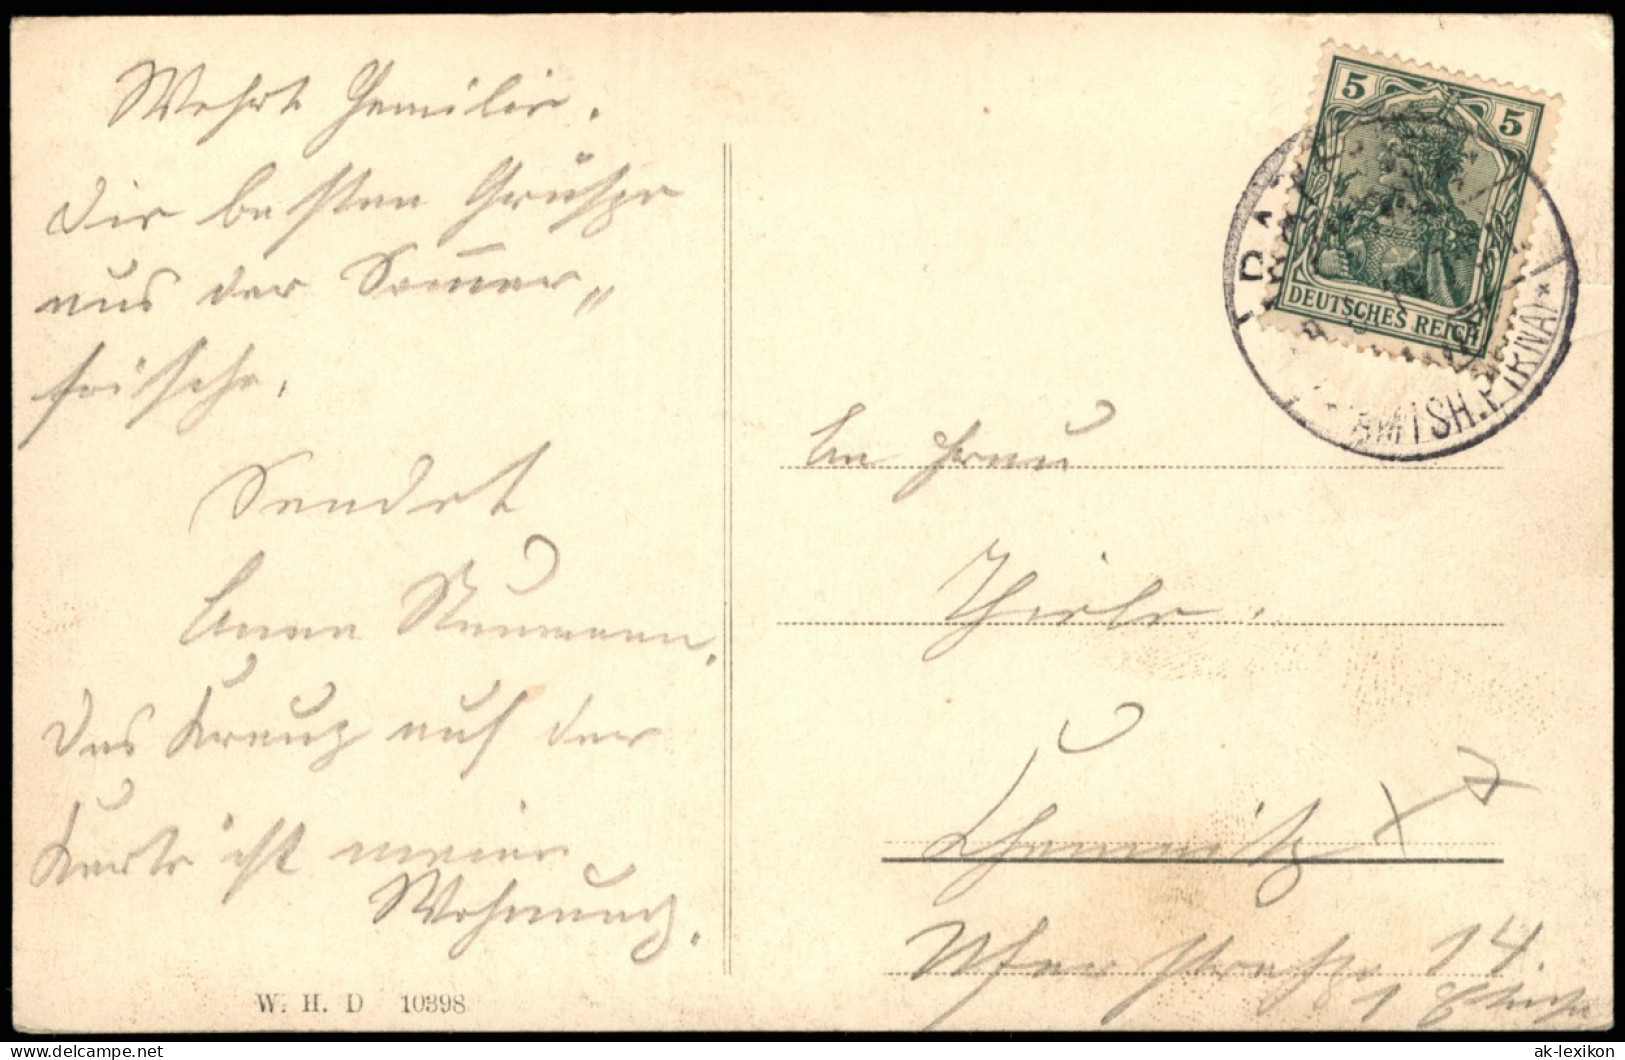 Wehrte Familie.
Die besten Grüsse
aus der Som̅er„
frische.
Sendet
Anna Naumann.
Das Kreuz auf der
Karte ist meine
Wohnung.
W. H. D 10398
5 5
DEUTSCHES REICH
AMTSH. PIRNA
An Frau
Thiele.
Chemnitz
Uferstraße 14.
1
delcampe.net
ak-lexikon